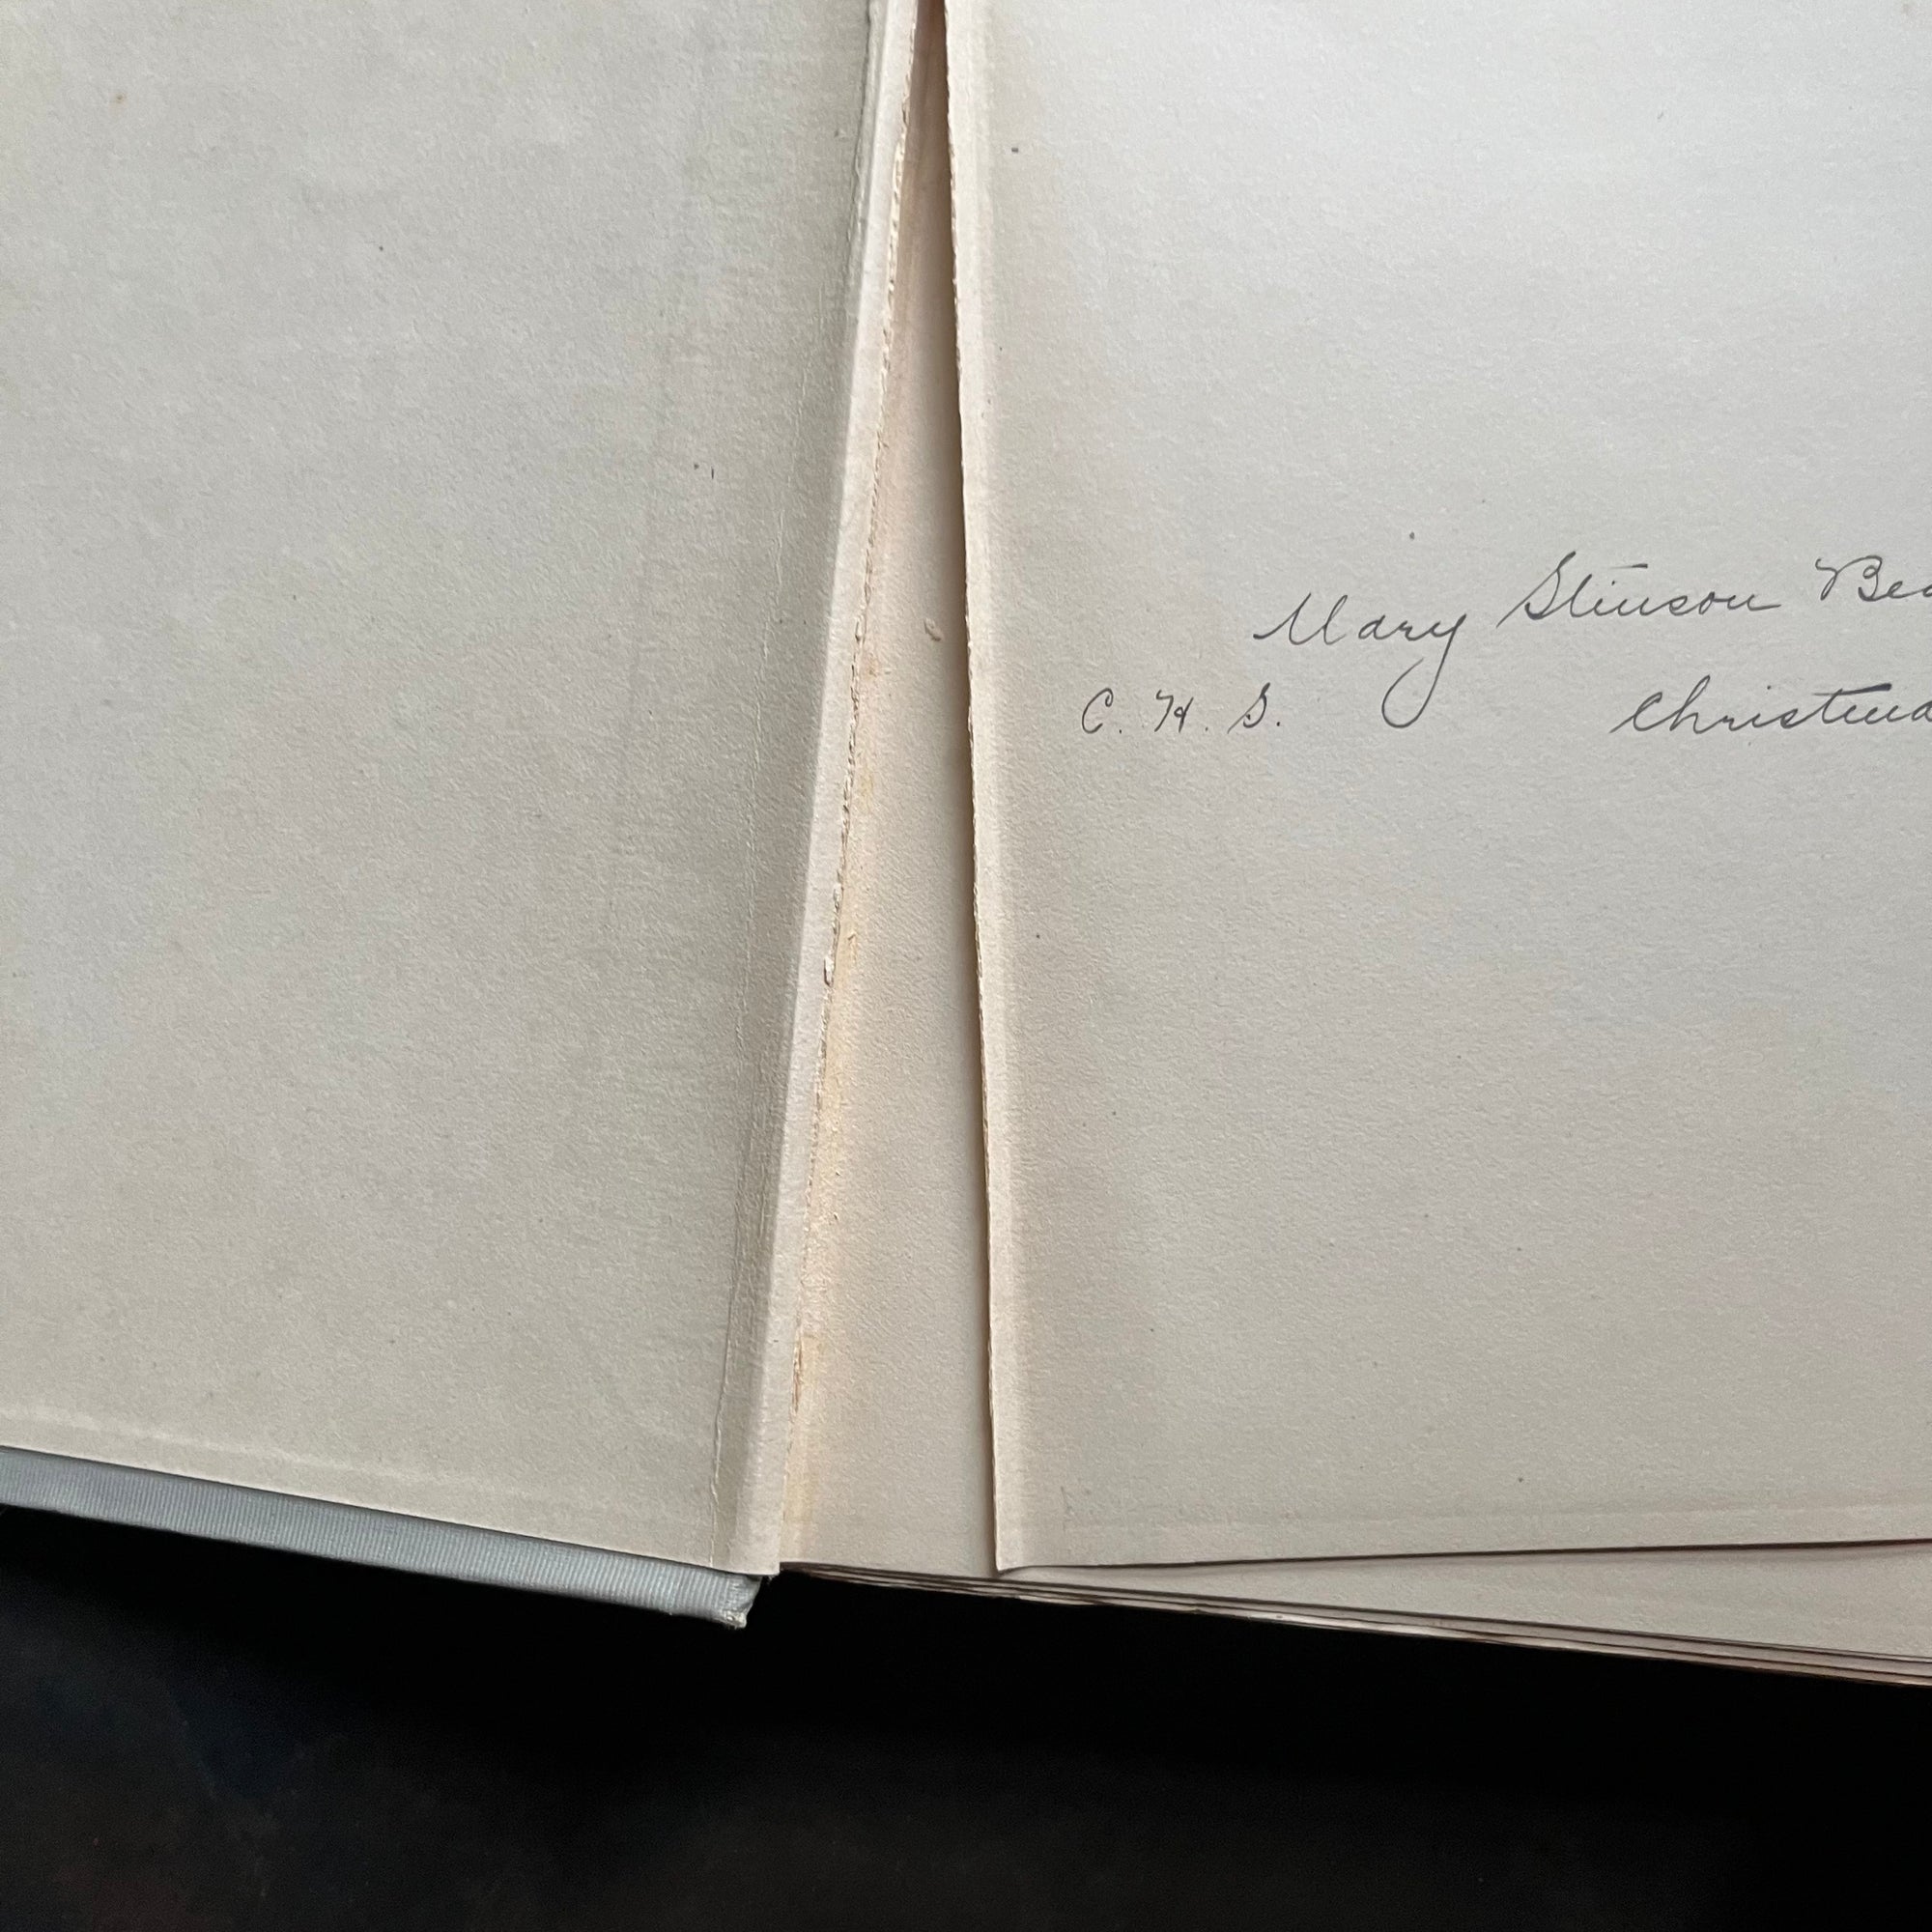 Mary Stinson Bea
C. H. S. Christma